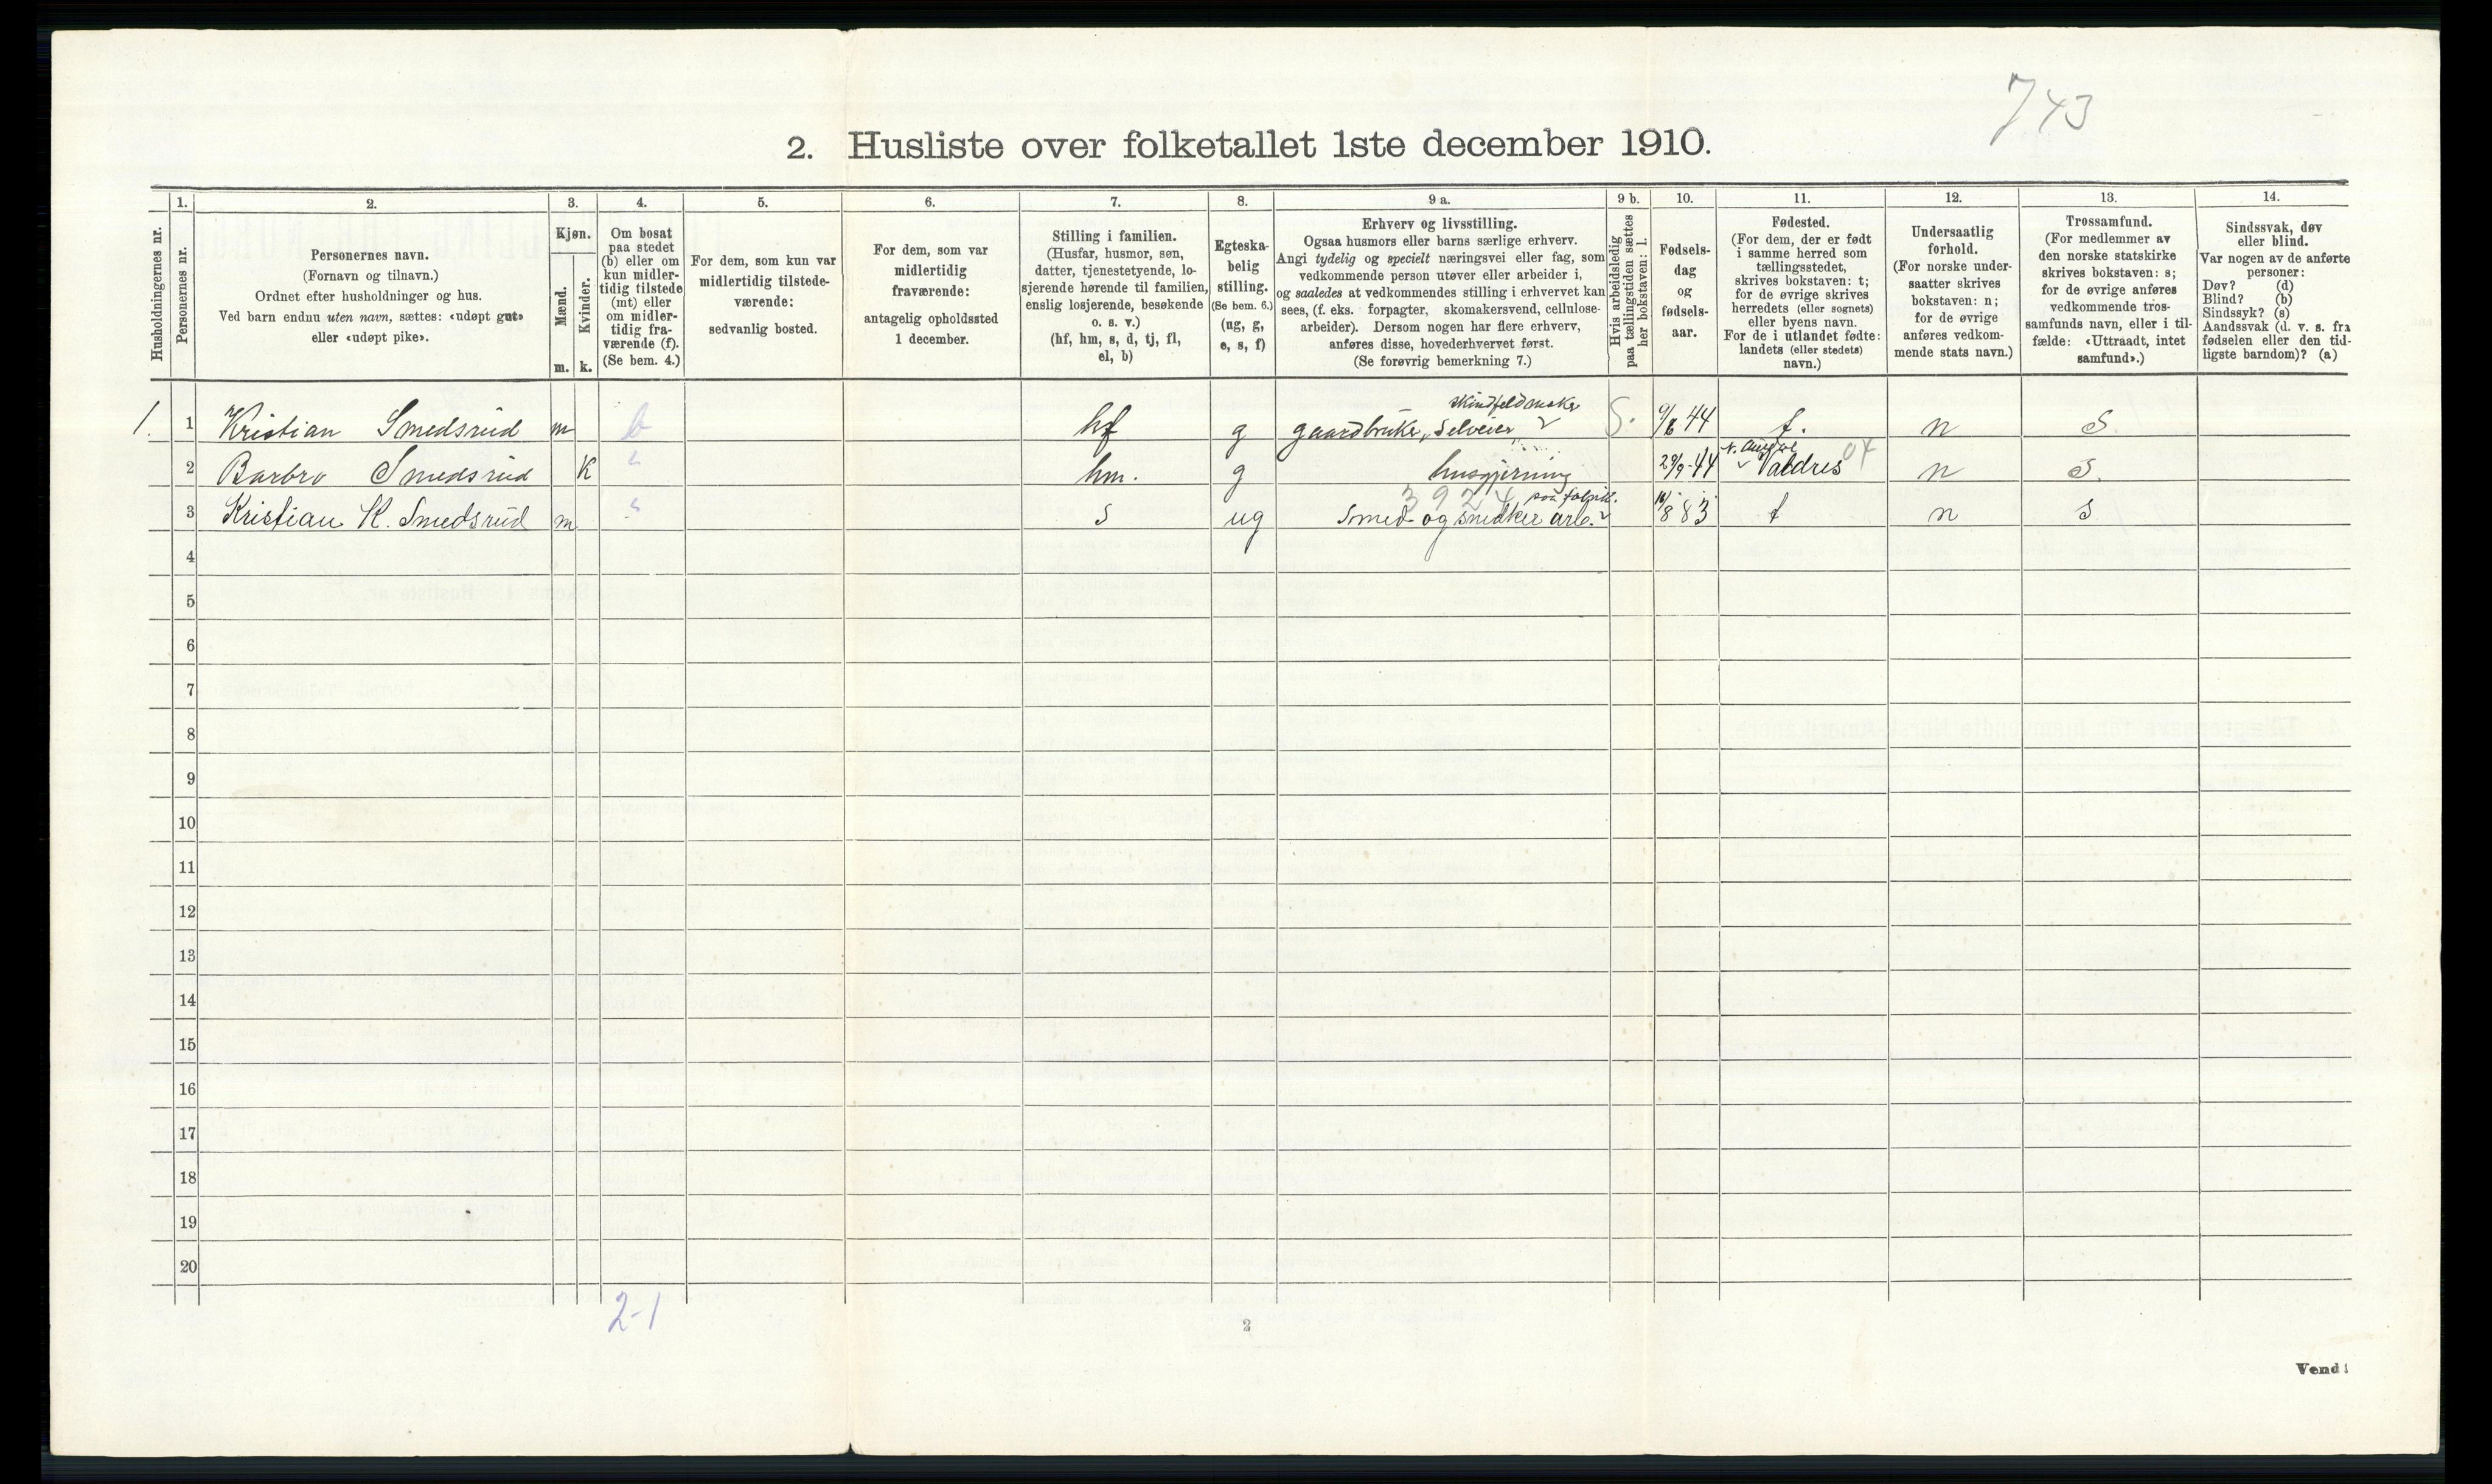 743
2. Husliste over folketallet 1ste december 1910.
Husholdningernes nr.
1.
Personernes nr.
2.
Personernes navn.
(Fornavn og tilnavn.)
Ordnet efter husholdninger og hus.
Ved barn endnu uten navn, sættes: «udøpt gut»
eller «udøpt pike».
3.
Kjøn.
Mænd.
Kvinder.
m. k.
4.
Om bosat
paa stedet
(b) eller om
kun midler-
tidig tilstede
(mt) eller
om midler-
tidig fra-
værende (f).
(Se bem. 4.)
5.
For dem, som kun var
midlertidig tilstede-
værende:
sedvanlig bosted.
6.
For dem, som var
midlertidig
fraværende:
antagelig opholdssted
1 december.
7.
Stilling i familien.
(Husfar, husmor, søn,
datter, tjenestetyende, lo-
sjerende hørende til familien,
enslig losjerende, besøkende
o. s. v.)
(hf, hm, s, d, tj, fl,
el, b)
8.
Egteska-
belig
stilling.
(Se bem. 6.)
(ug, g,
e, s, f)
9 a.
Erhverv og livsstilling.
Ogsaa husmors eller barns særlige erhverv.
Angi tydelig og specielt næringsvei eller fag, som
vedkommende person utøver eller arbeider i,
og saaledes at vedkommendes stilling i erhvervet kan
sees, (f. eks. forpagter, skomakersvend, cellulose-
arbeider). Dersom nogen har flere erhverv,
anføres disse, hovederhvervet først.
(Se forøvrig bemerkning 7.)
9 b.
Hvis arbeidsledig
paa tællingstiden sættes
her bokstaven: l.
10.
Fødsels-
dag
og
fødsels-
aar.
11.
Fødested.
(For dem, der er født
i samme herred som
tællingsstedet,
skrives bokstaven: t;
for de øvrige skrives
herredets (eller sognets)
eller byens navn.
For de i utlandet fødte:
landets (eller stedets)
navn.)
12.
Undersaatlig
forhold.
(For norske under-
saatter skrives
bokstaven: n;
for de øvrige
anføres vedkom-
mende stats navn.)
13.
Trossamfund.
(For medlemmer av
den norske statskirke
skrives bokstaven: s;
for de øvrige anføres
vedkommende tros-
samfunds navn, eller i til-
fælde: «Uttraadt, intet
samfund».)
14.
Sindssvak, døv
eller blind.
Var nogen av de anførte
personer:
Døv? (d)
Blind? (b)
Sindssyk? (s)
Aandssvak (d. v. s. fra
fødselen eller den tid-
ligste barndom)? (a)
1. 1 Kristian Smedsrud m b hf g gaardbruker, selveier S. 44 t. n S.
2 Barbro Smedsrud K " hm. g husgjerning 29/9-44 Valdres 04 n S.
3924 paa fabrik.
3 Kristian K. Smedsrud m " s ug Smed- og snedker arb. 83 t n s
4
5
6
7
8
9
10
11
12
13
14
15
16
17
18
19
20
2-1
2
Vend!